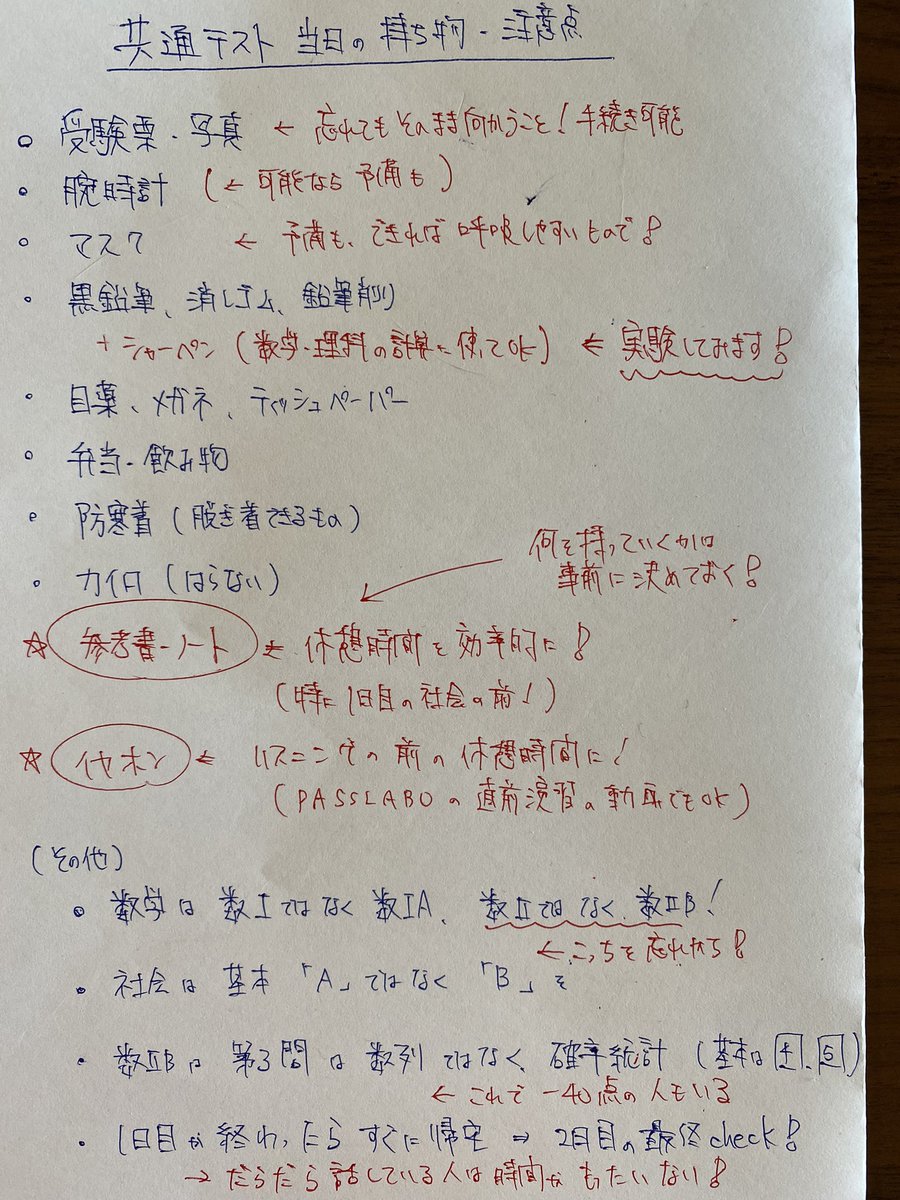 共通テスト 当日の持ち物・注意点
・受験票・写真 ← 忘れてもそのまま向かうこと!手続き可能
・腕時計 (← 可能なら予備も)
・マスク ← 予備も、できれば呼吸しやすいもので!
・黒鉛筆、消しゴム、鉛筆削り
+シャーペン (数学・理科の計算に使ってOK) ← 実験してみます!
・目薬、メガネ、ティッシュペーパー
・弁当・飲み物
・防寒着 (脱ぎ着できるもの)
何を持っていくかは
事前に決めておく!
・カイロ (はらない)
☆ 参考書・ノート ← 休憩時間を効率的に!
(特に1日目の社会の前!)
☆ イヤホン ← リスニングの前の休憩時間に!
(PASSLABOの直前演習の動画でもOK)
(その他)
・数学は数Iではなく数IA、数IIではなく、数IIB!
← こっちを忘れがち!
・社会は基本「A」ではなく「B」を
・数IIBは第3問は数列ではなく、確率統計 (基本は4、5)
← これで-40点の人もいる
・1日目が終わったらすぐに帰宅 ⇒ 2日目の最終check!
→ だらだら話している人は時間がもったいない!